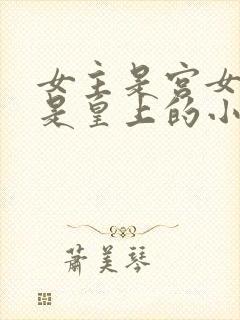 女主是宫女
是皇上的小
萧美琴